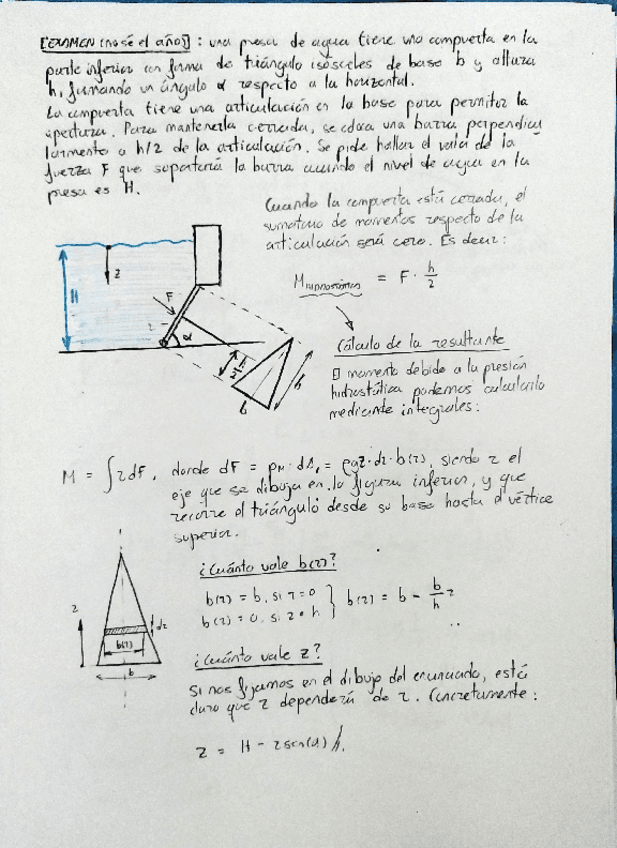 [EXAMEN (no sé el año)]: una presa de agua tiene una compuerta en la
parte inferior con forma de triángulo isósceles de base b y altura
h, formando un ángulo α respecto a la horizontal.
La compuerta tiene una articulación en la base para permitir la
apertura. Para mantenerla cerrada, se coloca una barra perpendicu
larmente a h/2 de la articulación. Se pide hallar el valor de la
fuerza F que soportaría la barra cuando el nivel de agua en la
presa es H.
Cuando la compuerta está cerrada, el
sumatorio de momentos respecto de la
articulación será cero. Es decir:
M = F · h/2
H
z
F
α
h/2
h
b
Cálculo de la resultante
El momento debido a la presión
hidrostática podemos calcularlo
mediante integrales:
M = ∫ z dF, donde dF = ρgz·dz·b(z), siendo z el
eje que se dibuja en la figura inferior, y que
recorre el triángulo desde su base hasta el vértice
superior.
¿Cuánto vale b(z)?
b(z) = b, si z = 0
b(z) = 0, si z = h
} b(z) = b - b/h z
z
dz
b(z)
b
¿Cuánto vale z?
Si nos fijamos en el dibujo del enunciado, está
claro que z dependerá de z. Concretamente:
z = H - z sen(α)